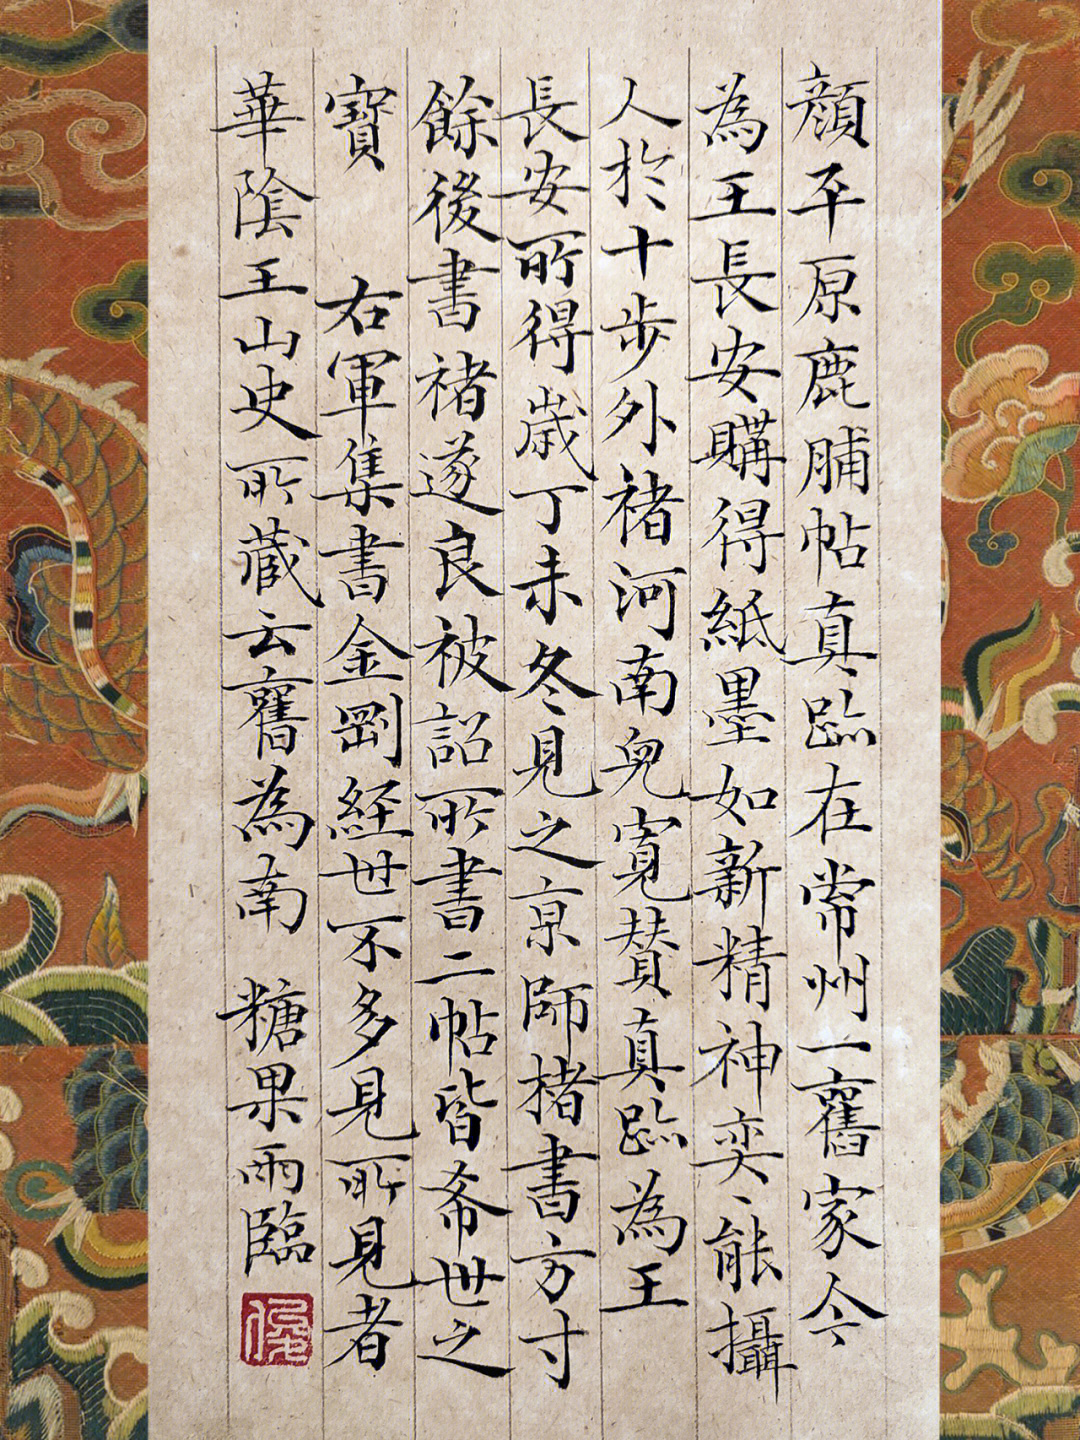 顏平原鹿脯帖真跡在常州一舊家今
為王長安購得紙墨如新精神奕、能攝
人於十步外褚河南兒寬贊真跡為王
長安所得歲丁未冬見之京師楮書方寸
餘後書褚遂良被詔所書二帖皆希世之
寶 右軍集書金剛經世不多見所見者
華陰王山史所藏云舊為南 糖果雨臨